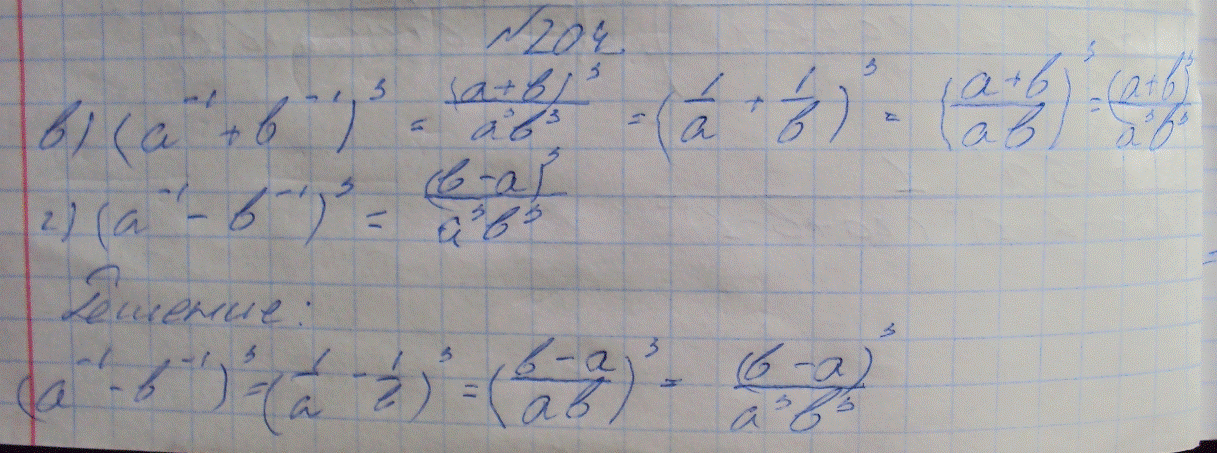 №204
в) (a⁻¹ + b⁻¹)³ = (a+b)³/a³b³ = (1/a + 1/b)³ = ((a+b)/ab)³ = (a+b)³/a³b³
г) (a⁻¹ - b⁻¹)³ = (b-a)³/a³b³
Решение:
(a⁻¹ - b⁻¹)³ = (1/a - 1/b)³ = ((b-a)/ab)³ = (b-a)³/a³b³